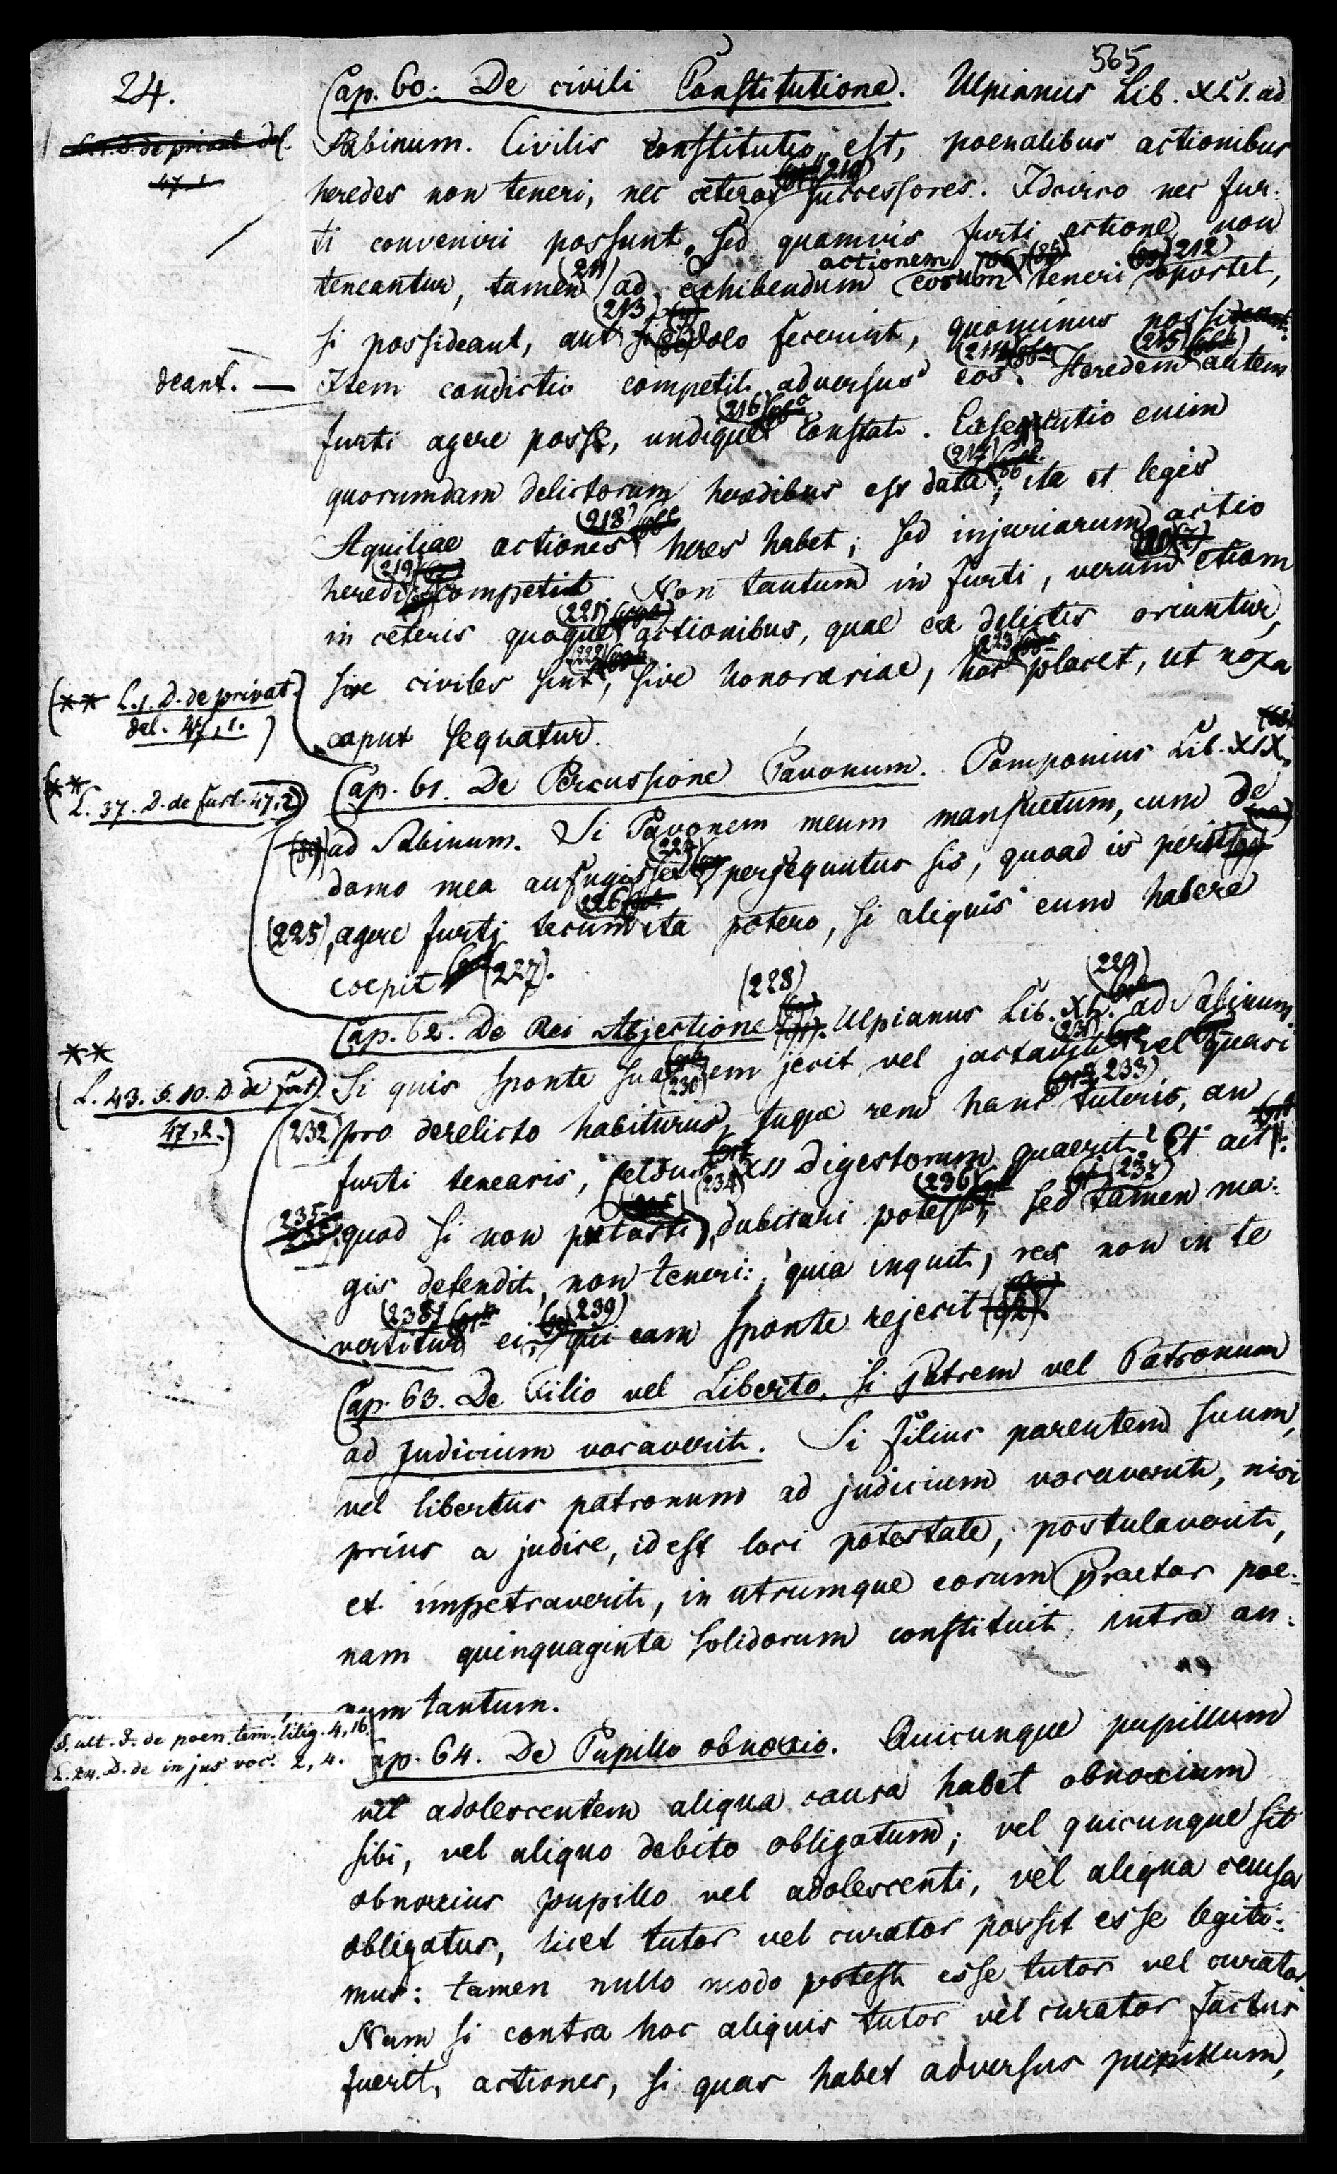 565
24.
Cap. 60. De civili Constitutione. Ulpianus Lib. XLI. ad
L. 1. D. de privat. del. 47, 1.
Sabinum. Civilis constitutio est, poenalibus actionibus
heredes non teneri, nec ceteros (210) successores. Idcirco nec fur-
ti conveniri possunt. Sed quamvis furti actione non
teneantur, tamen (211) ad exhibendum actionem eos teneri (212) oportet,
si possideant, aut (213) dolo fecerint, quominus possideant.
deant. — Item condictio competit adversus eos. (214) Heredem (215) autem
furti agere posse, undique (216) constat. Exsecutio enim
quorumdam delictorum heredibus est data (217); ita et legis
Aquiliae actiones (218) heres habet; sed injuriarum actio
heredi (219) competit. Non tantum in furti, verum (220) etiam
in ceteris quoque (221) actionibus, quae ex delictis oriuntur,
sive civiles sint (222), sive honorariae, hoc (223) placet, ut noxa
(** L. 1. D. de privat. del. 47, 1.)
caput sequatur.
Cap. 61. De Percussione Pavonum. Pomponius Lib. XIX.
(** L. 37. D. de furt. 47, 2.)
ad Sabinum. Si Pavonem meum mansuetum, cum de
domo mea aufugisset (224) persequutus sis, quoad is perit
(225), agere furti tecum (226) ita potero, si aliquis eum habere
coepit (227).
Cap. 62. De Rei Abjectione (228). Ulpianus Lib. XL. (229) ad Sabinum.
** (L. 43. §. 10. D. de furt. 47, 2.)
Si quis sponte suam (230) rem jecit vel jactavit (231) vel quasi
(232) pro derelicto habiturus, tuque rem hanc (233) tuleris, an
furti tenearis, Celsus (234) XII Digestorum quaerit? Et ait:
235. quod si non putasti, dubitari potest (236), sed (237) tamen ma-
gis defendit, non teneri: quia inquit, res non in te
vertitur (238) ei, (239) qui eam sponte rejecit (92).
Cap. 63. De Filio vel Liberto, si Patrem vel Patronum
ad judicium vocaverit. Si filius parentem suum,
vel libertus patronum ad judicium vocaverit, nisi
prius a judice, id est loci potestate, postulaverit,
et impetraverit, in utrumque eorum Praetor poe-
nam quinquaginta solidorum constituit intra an-
num tantum.
§. ult. J. de poen. tem. litig. 4, 16.
L. 24. D. de in jus voc. 2, 4.
Cap. 64. De Pupillo obnoxio. Quicunque pupillum
vel adolescentem aliqua causa habet obnoxium
sibi, vel aliquo debito obligatum; vel quicunque sit
obnoxius pupillo vel adolescenti, vel aliqua causa
obligatus, licet tutor vel curator possit esse legiti-
mus: tamen nullo modo potest esse tutor vel curator
Nam si contra hoc aliquis tutor vel curator factus
fuerit, actiones, si quas habet adversus pupillum,